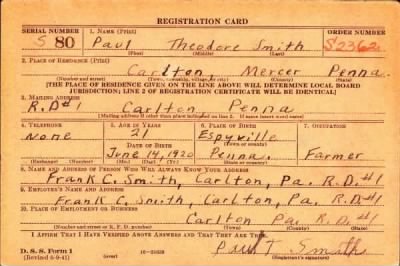 REGISTRATION CARD
SERIAL NUMBER 1. NAME (Print) ORDER NUMBER
S 80 Paul Theodore Smith S2362
(First) (Middle) (Last)
2. PLACE OF RESIDENCE (Print)
Carlton Mercer Penna.
(Number and street) (Town, township, village, or city) (County) (State)
[THE PLACE OF RESIDENCE GIVEN ON THE LINE ABOVE WILL DETERMINE LOCAL BOARD
JURISDICTION; LINE 2 OF REGISTRATION CERTIFICATE WILL BE IDENTICAL]
3. MAILING ADDRESS
R.D#1 Carlton Penna
[Mailing address if other than place indicated on line 2. If same insert word same]
4. TELEPHONE 5. AGE IN YEARS 6. PLACE OF BIRTH 7. OCCUPATION
None 21 Espyville
DATE OF BIRTH (Town or county)
June 14, 1920 Penna. Farmer
(Exchange) (Number) (Mo.) (Day) (Yr.) (State or country)
8. NAME AND ADDRESS OF PERSON WHO WILL ALWAYS KNOW YOUR ADDRESS
Frank C. Smith, Carlton, Pa. R.D.#1
9. EMPLOYER'S NAME AND ADDRESS
Frank C. Smith, Carlton, Pa. R.D.#1
10. PLACE OF EMPLOYMENT OR BUSINESS
Carlton Pa. R.D.#1
(Number and street or R. F. D. number) (Town) (County) (State)
I AFFIRM THAT I HAVE VERIFIED ABOVE ANSWERS AND THAT THEY ARE TRUE.
Paul T Smith
D. S. S. Form 1
(Revised 6-9-41) (over) (Registrant's signature)